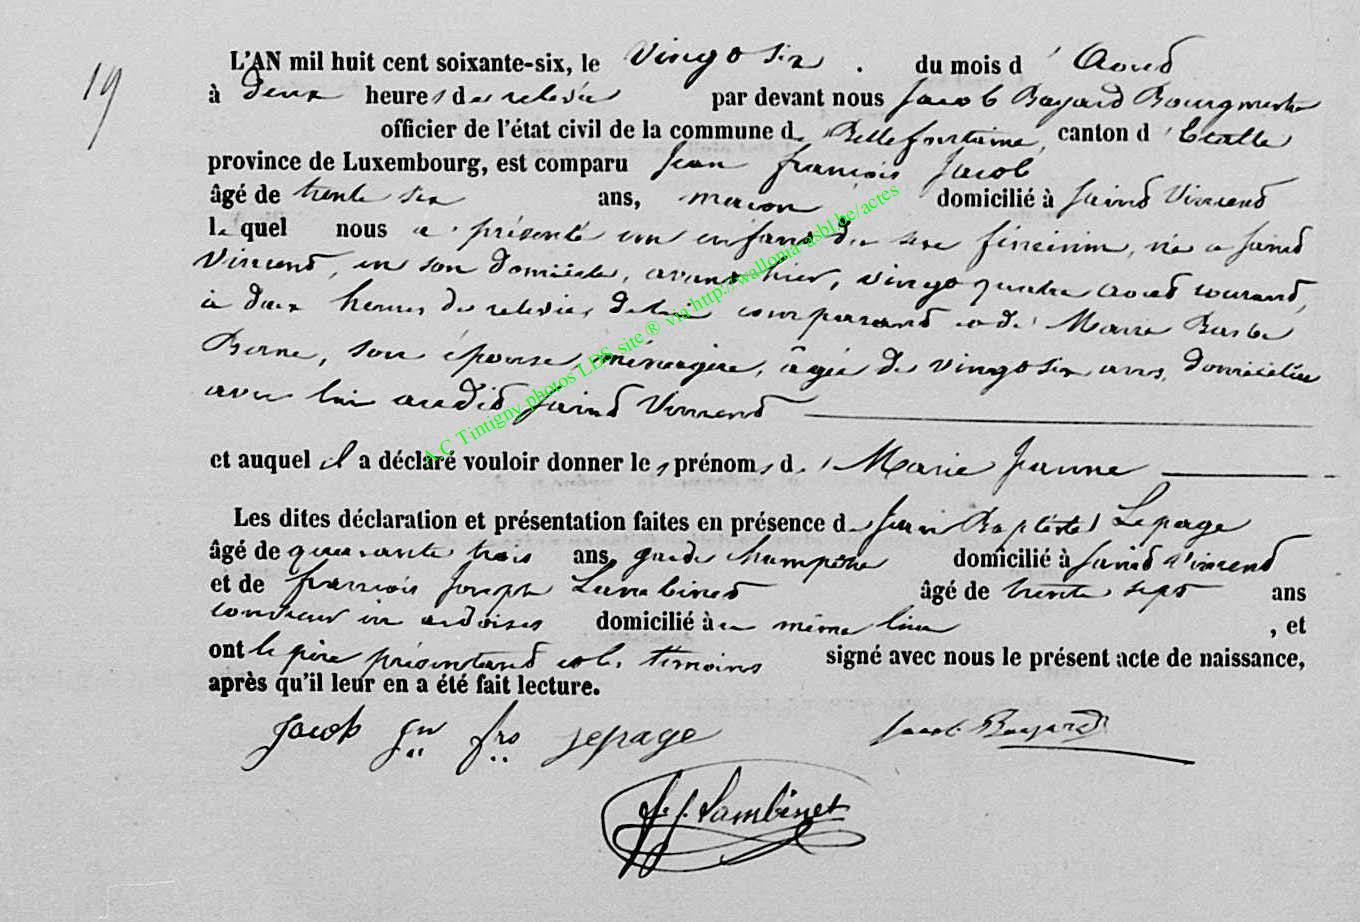 19
L'AN mil huit cent soixante-six, le vingt six . du mois d' Aout
à deux heures de relevée par devant nous Jacob Bayard Bourgmestre
officier de l'état civil de la commune de Bellefontaine, canton d' Etalle
province de Luxembourg, est comparu Jean François Jacob
âgé de trente six ans, maçon domicilié à Saint Vincent
lequel nous a présenté un enfant du sexe féminin, née a Saint
Vincent, en son domicile, avant hier, vingt quatre aout courant,
à deux heures de relevée, de lui comparant et de Marie Barbe
Perne, son épouse, ménagère, âgée de vingt six ans, domiciliée
avec lui audit Saint Vincent
et auquel il a déclaré vouloir donner les prénoms de Marie Jeanne
Les dites déclaration et présentation faites en présence de Jean Baptiste Lepage
âgé de quarante trois ans, garde champêtre domicilié à Saint Vincent
et de françois Joseph Lambinet âgé de trente sept ans
couvreur en ardoises domicilié à u même lieu , et
ont le père présentant et les témoins signé avec nous le présent acte de naissance,
après qu'il leur en a été fait lecture.
Jacob Jn frs Lepage Jacob Bayard
f. J. Lambinet
A.C Tintigny photos LDS site ® via http://wallonia-asbl.be/actes